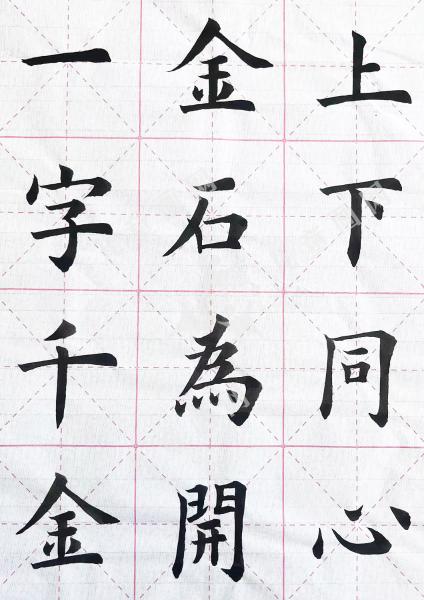 上下同心
金石為開
一字千金